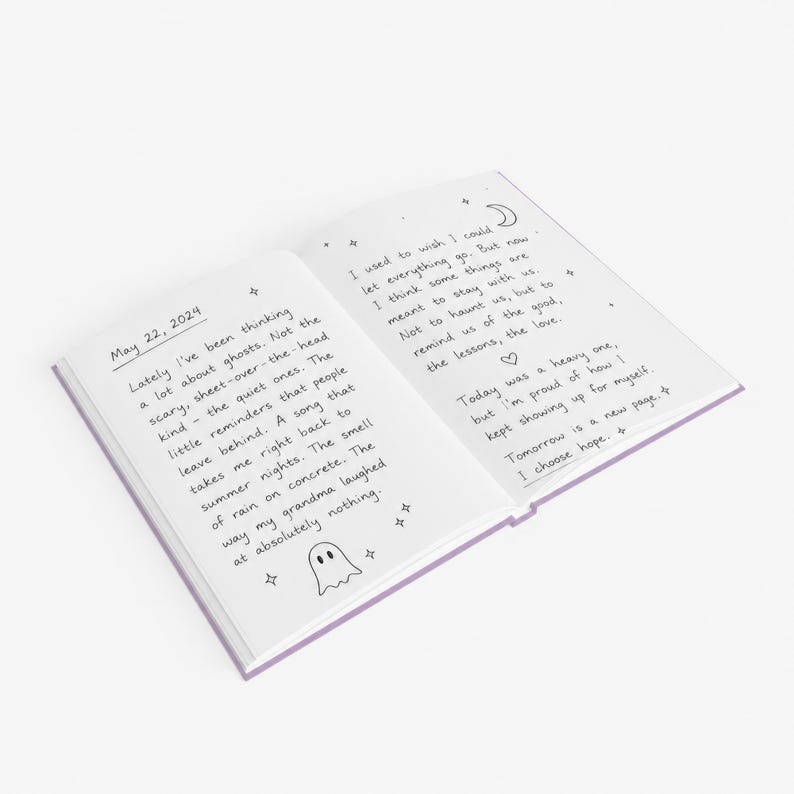 May 22, 2024
Lately I've been thinking
a lot about ghosts. Not the
scary, sheet-over-the-head
kind - the quiet ones. The
little reminders that people
leave behind. A song that
takes me right back to
summer nights. The smell
of rain on concrete. The
way my grandma laughed
at absolutely nothing.
I used to wish I could
let everything go. But now
I think some things are
meant to stay with us.
Not to haunt us, but to
remind us of the good,
the lessons, the love.
Today was a heavy one,
but i'm proud of how I
kept showing up for myself.
Tomorrow is a new page.
I choose hope.